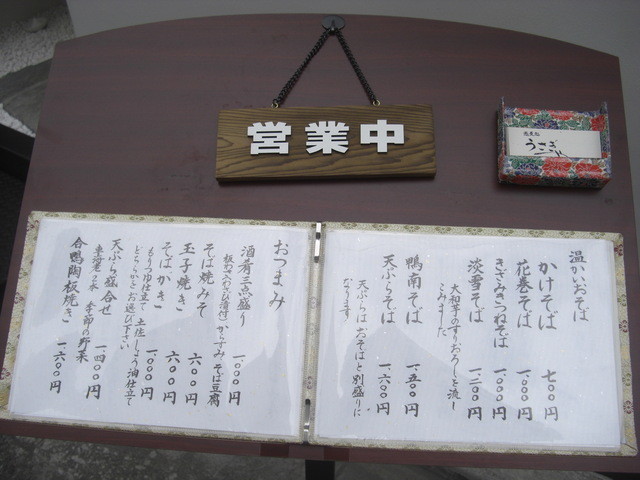 営業中
蕎麦処
うさぎ
温かいおそば
かけそば 七〇〇円
花巻そば 一、〇〇〇円
きざみきつねそば 一、〇〇〇円
淡雪そば 一、二〇〇円
大和芋のすりおろしを流し
こみました
鴨南そば 一、五〇〇円
天ぷらそば 一、六〇〇円
天ぷらはおそばと別盛りに
なります
おつまみ
酒肴三点盛り 一、〇〇〇円
板わさ(わさび漬付) からすみ そば豆腐
そば焼みそ 六〇〇円
玉子焼き 六〇〇円
そばかき 一、〇〇〇円
もりつゆ仕立て 土佐しょう油仕立て
どちらかをお選び下さい
天ぷら盛合せ 一、四〇〇円
車海老二本 季節の野菜
合鴨陶板焼き 一、六〇〇円